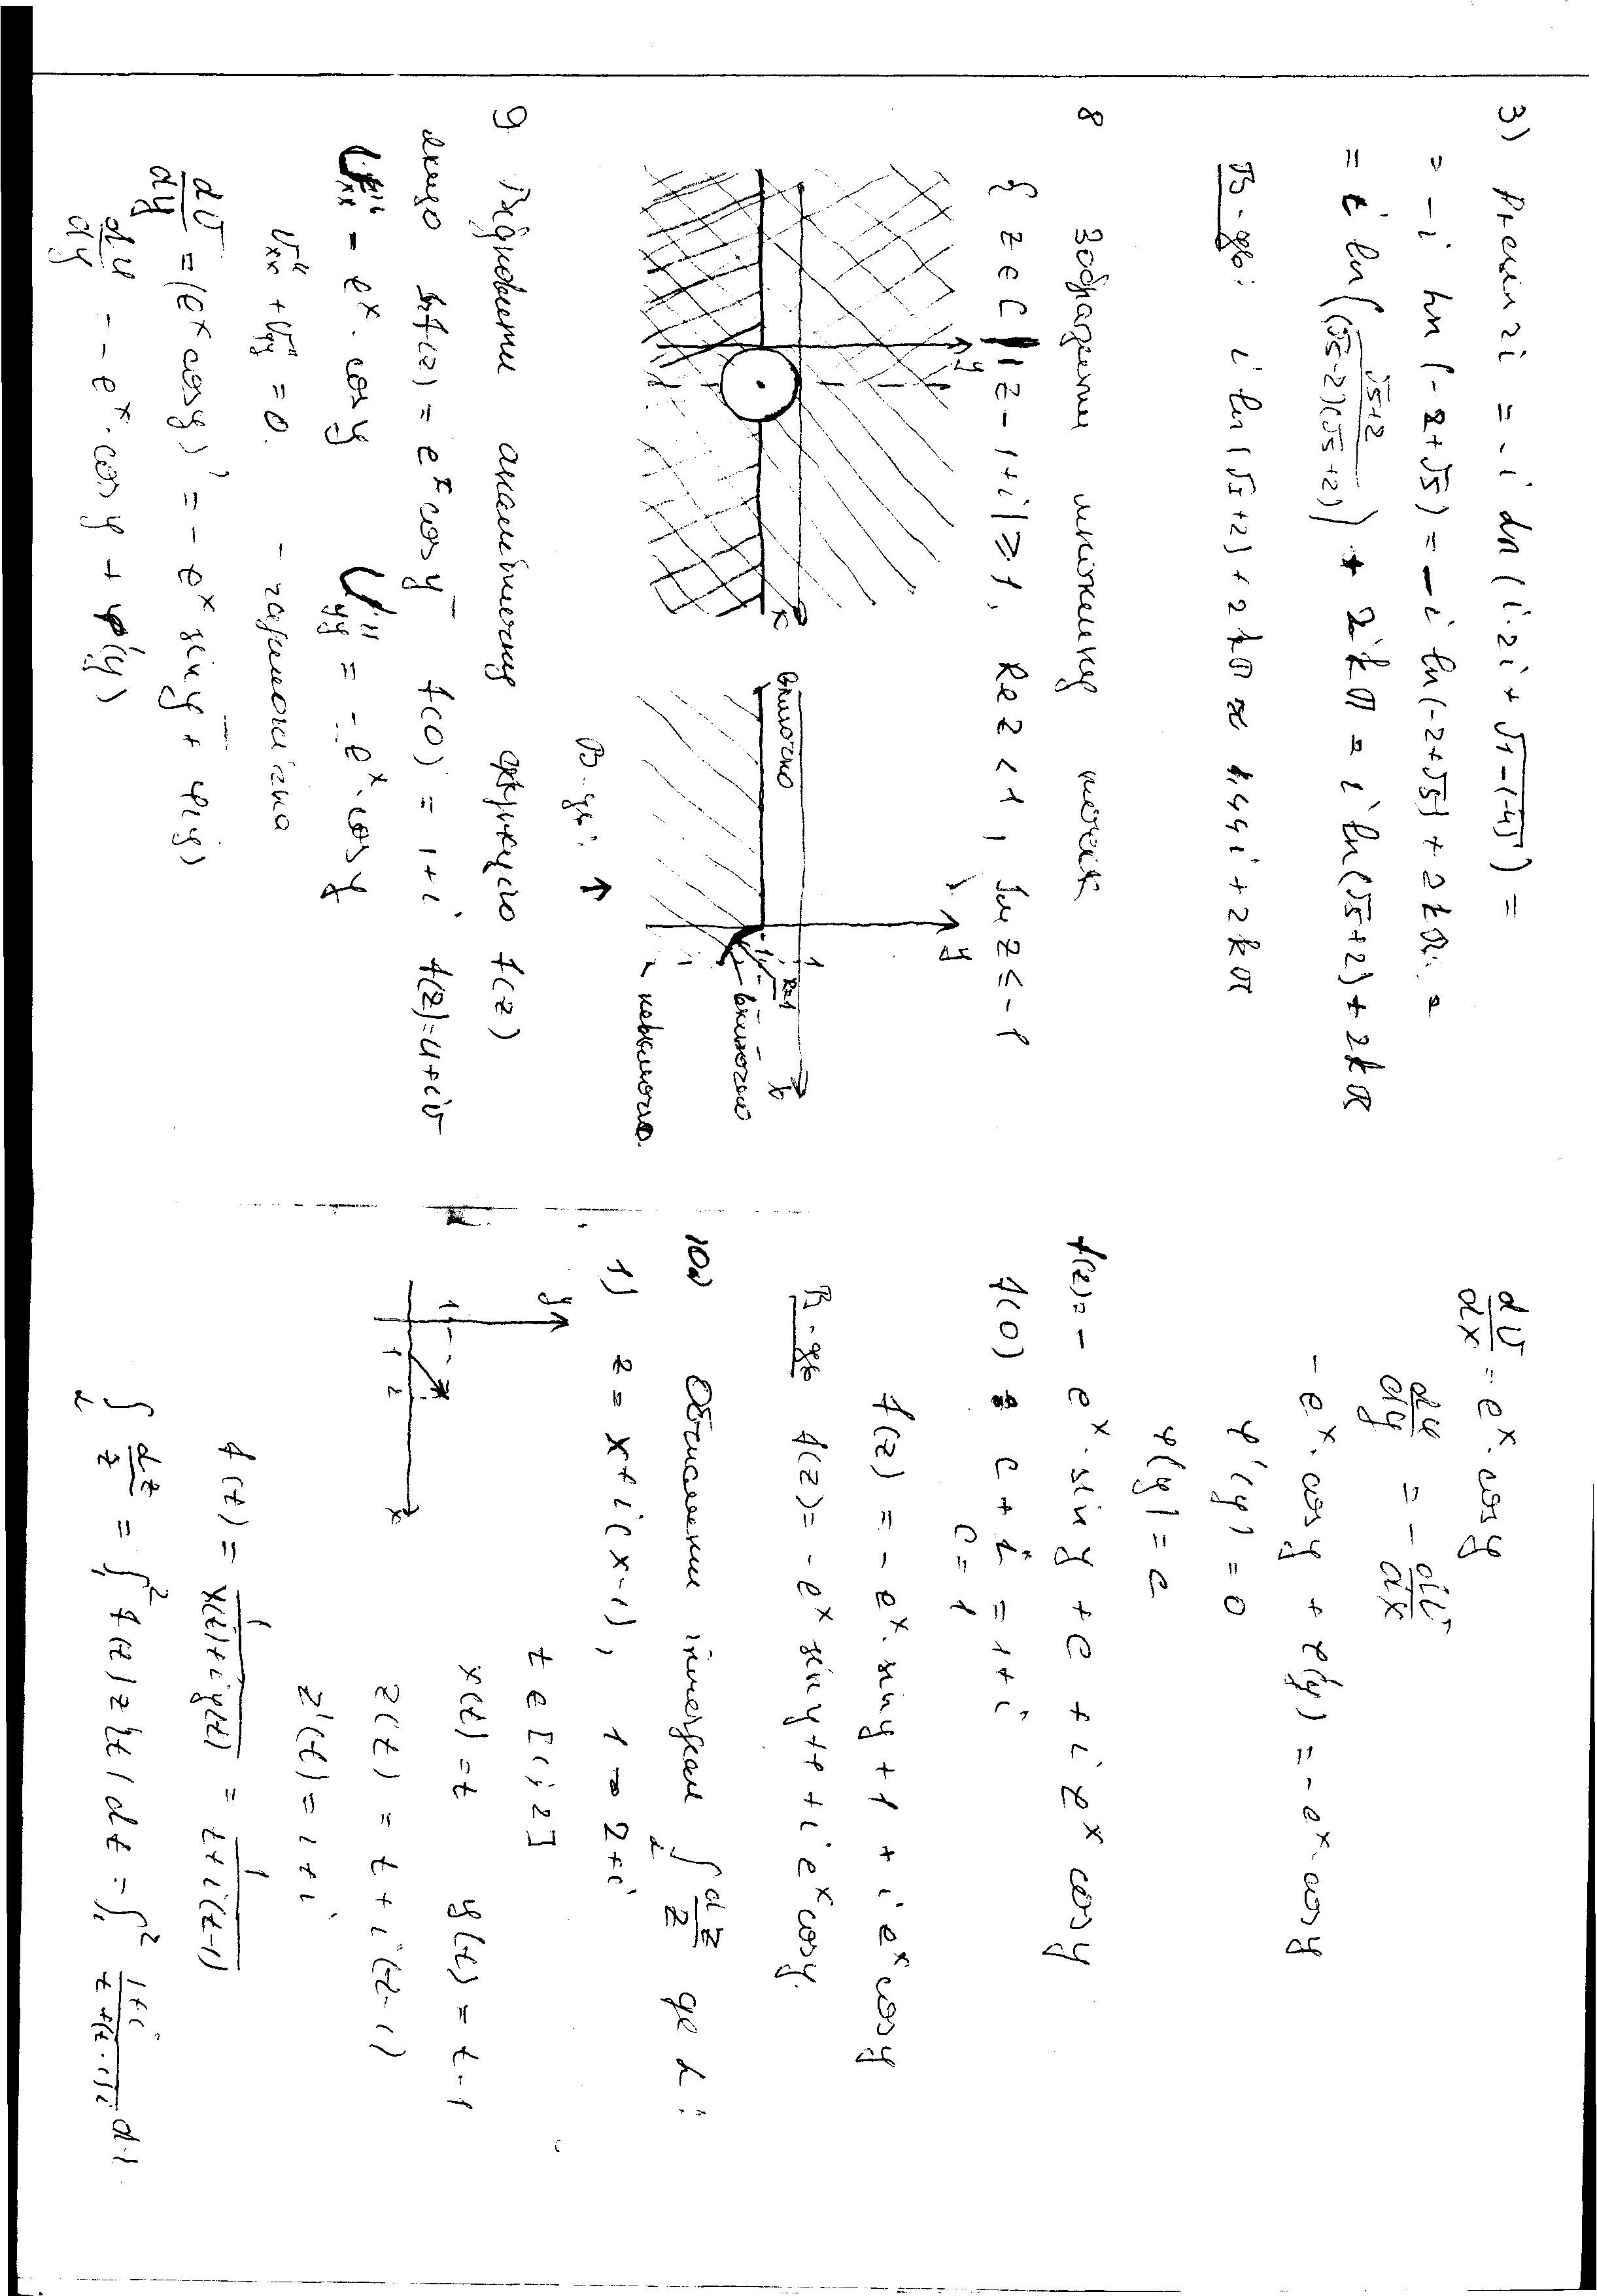 3) Arcsin 2i = -i Ln (i·2i + √1-(-4)) =
= -i Ln (-2+√5) = -i ln(-2+√5) + 2kπ =
= i ln((√5+2)/((√5-2)(√5+2))) + 2kπ = i ln(√5+2) + 2kπ
В-дь: i ln(√5+2) + 2kπ ≈ 1,44i + 2kπ
8 Зобразити множину точок
{ z ∈ C | |z-1+i| ≥ 1, Re z < 1, Im z ≤ -1
y
x
включно
y
x
1
включно
невключно
В-дь: ↑
9 Відновити аналітичну функцію f(z)
якщо Imf(z) = e^x cos y f(0) = 1+i f(z) = u+iv
U''xx = e^x · cos y U''yy = -e^x · cos y
U''xx + U''yy = 0. - гармонічна
dv/dy = (e^x cos y)' = -e^x sin y + φ(y)
du/dy = -e^x · cos y + φ'(y)
dv/dx = e^x · cos y
du/dy = - dv/dx
-e^x · cos y + φ'(y) = -e^x · cos y
φ'(y) = 0
φ(y) = c
f(z) = -e^x · sin y + c + i e^x cos y
f(0) = c + i = 1+i
c = 1
f(z) = -e^x · sin y + 1 + i e^x cos y
В-дь f(z) = -e^x sin y + 1 + i e^x cos y.
10a) Обчислити інтеграл ∫_L dz/z де L:
1) z = x+i(x-1), 1 → 2+i
y
1
1 2
x
t ∈ [1; 2]
x(t) = t y(t) = t-1
z(t) = t + i(t-1)
z'(t) = 1+i
f(t) = 1/(x(t)+iy(t)) = 1/(t+i(t-1))
∫_L dz/z = ∫₁² f(t) z'(t) dt = ∫₁² (1+i)/(t+(t-1)i) dt